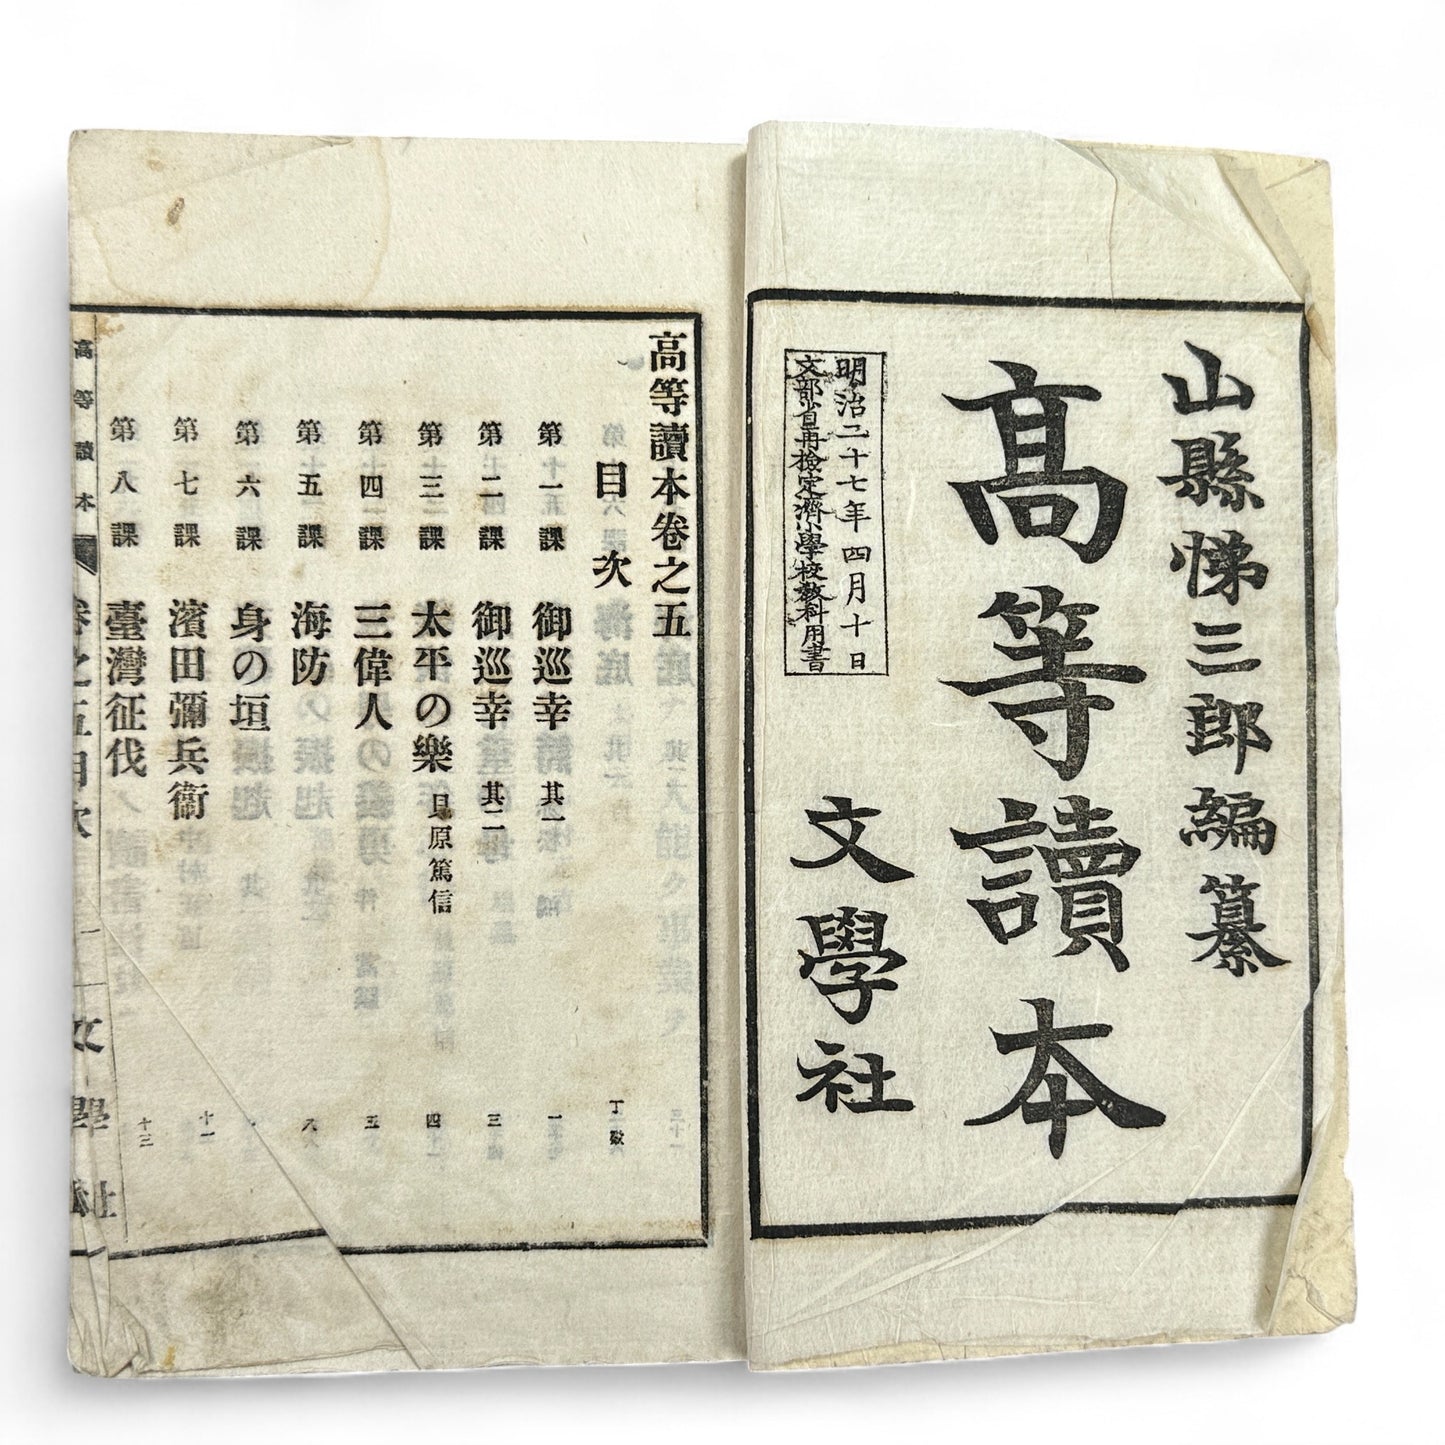 山縣悌三郎編纂
高等讀本
文學社
明治二十七年四月十日
文部省再檢定濟小學校教科用書
高等讀本卷之五
目次 丁數
第一課 御巡幸 其一 一
第二課 御巡幸 其二 三
第三課 太平の樂 貝原篤信 四
第四課 三偉人 五
第五課 海防 八
第六課 身の垣
第七課 濱田彌兵衞 十一
第八課 臺灣征伐 十三
高等讀本 卷之五目次 一 文學社